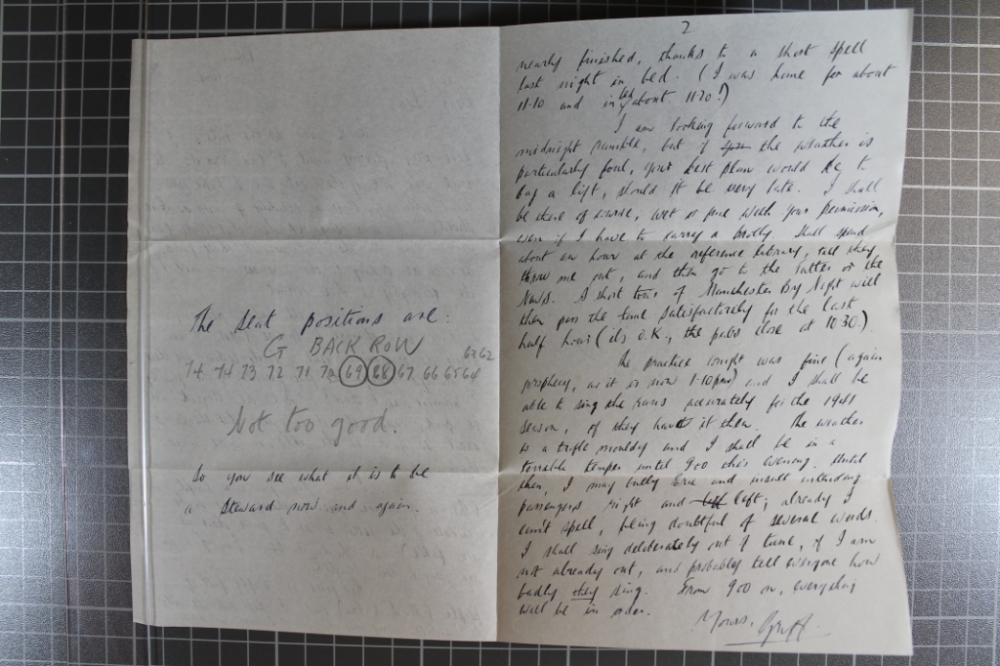 The seat positions are:
G BACK ROW
62 62
74 74 73 72 71 70 69 68 67 66 65 64
Not too good.
So you see what it is to be
a steward now and again.
2
nearly finished, thanks to a short spell
last night in bed. (I was home for about
11.10 and in bed about 11.20!)
I am looking forward to the
midnight ramble, but if the weather is
particularly foul, your best plan would be to
bag a lift, should it be very late. I shall
be there of course, wet or fine with your permission,
even if I have to carry a brolly. Shall spend
about an hour at the reference library, till they
throw me out, and then go to the latter or the
News. A short tour of Manchester By Night will
then pass the time satisfactorily for the last
half hour (it's O.K., the pubs close at 10.30.)
The practice tonight was fine (again
prophecy, as it is now 1.10pm) and I shall be
able to sing the runs accurately for the 1941
season, if they have it then. The weather
is a trifle mouldy and I shall be in a
terrible temper until 9.00 this evening. Until
then, I may bully and insult
passengers right and left left; already I
can't spell, being doubtful of several words.
I shall sing deliberately out of tune, if I am
not already out, and probably tell everyone how
badly they sing. From 9.00 on, everything
will be in order.
Yours, Gruff